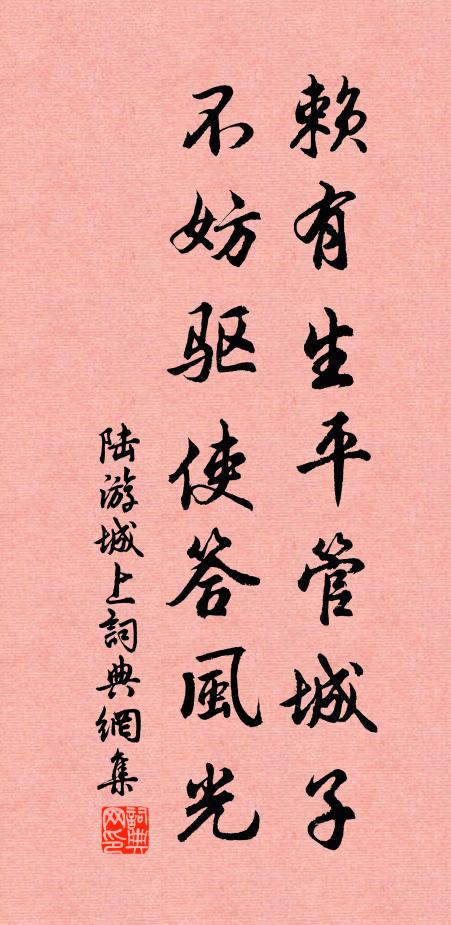 赖有生平管城子
不妨驱使答風光
陆游城上詞典網集
詞典网印